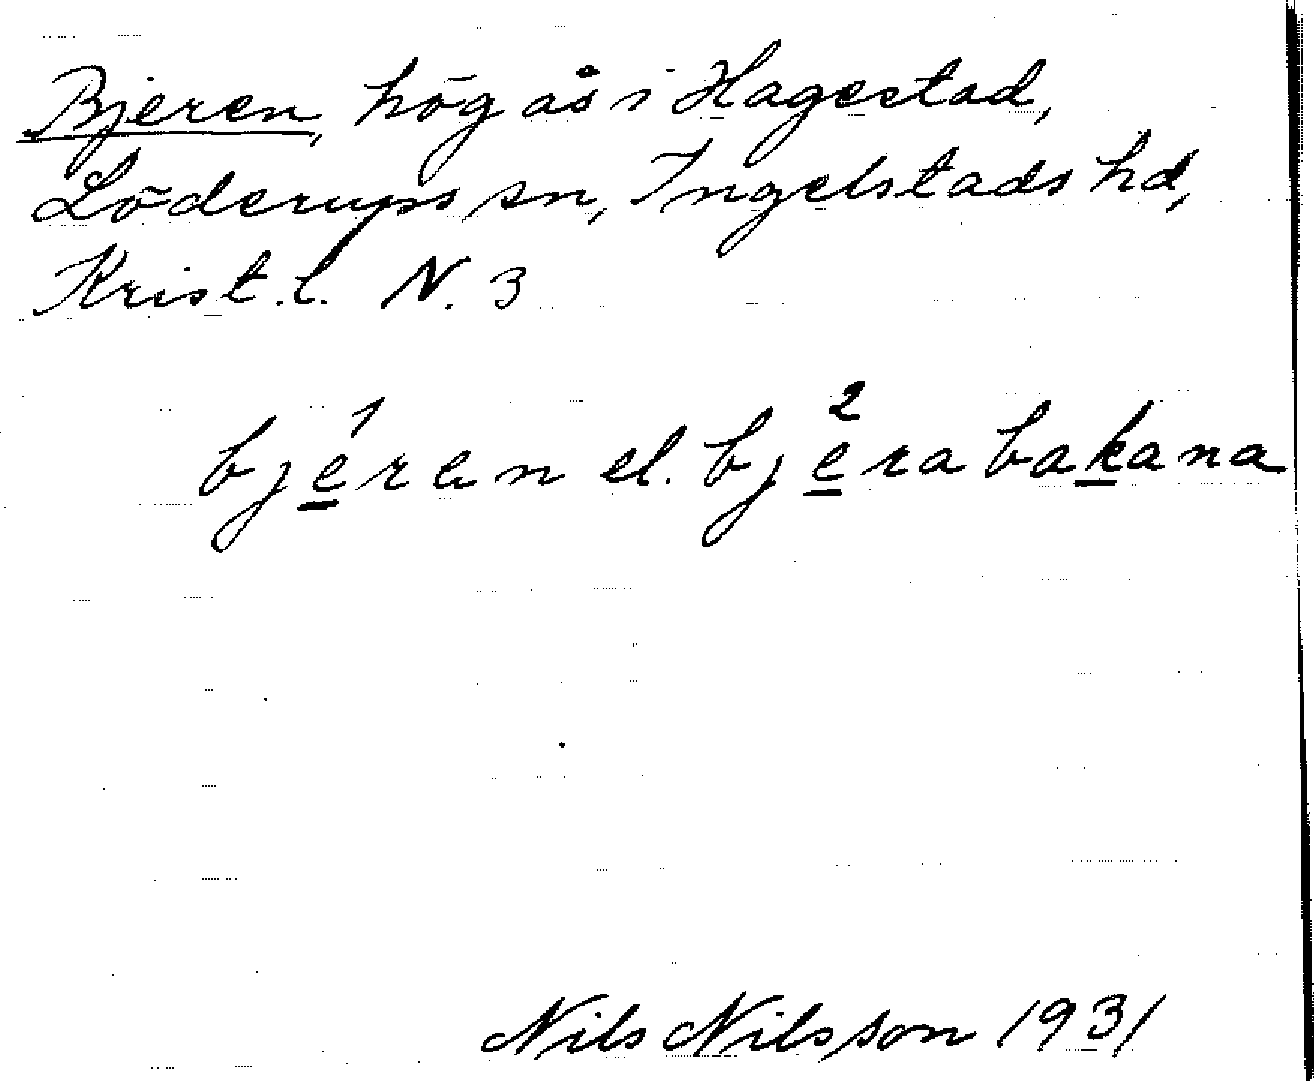 Bjeren, hög ås i Hagestad,
Löderups sn, Ingelstads hd,
Krist. l. N. 3
bje̲¹ren el. bje̲²rabak̲ana
Nils Nilsson 1931